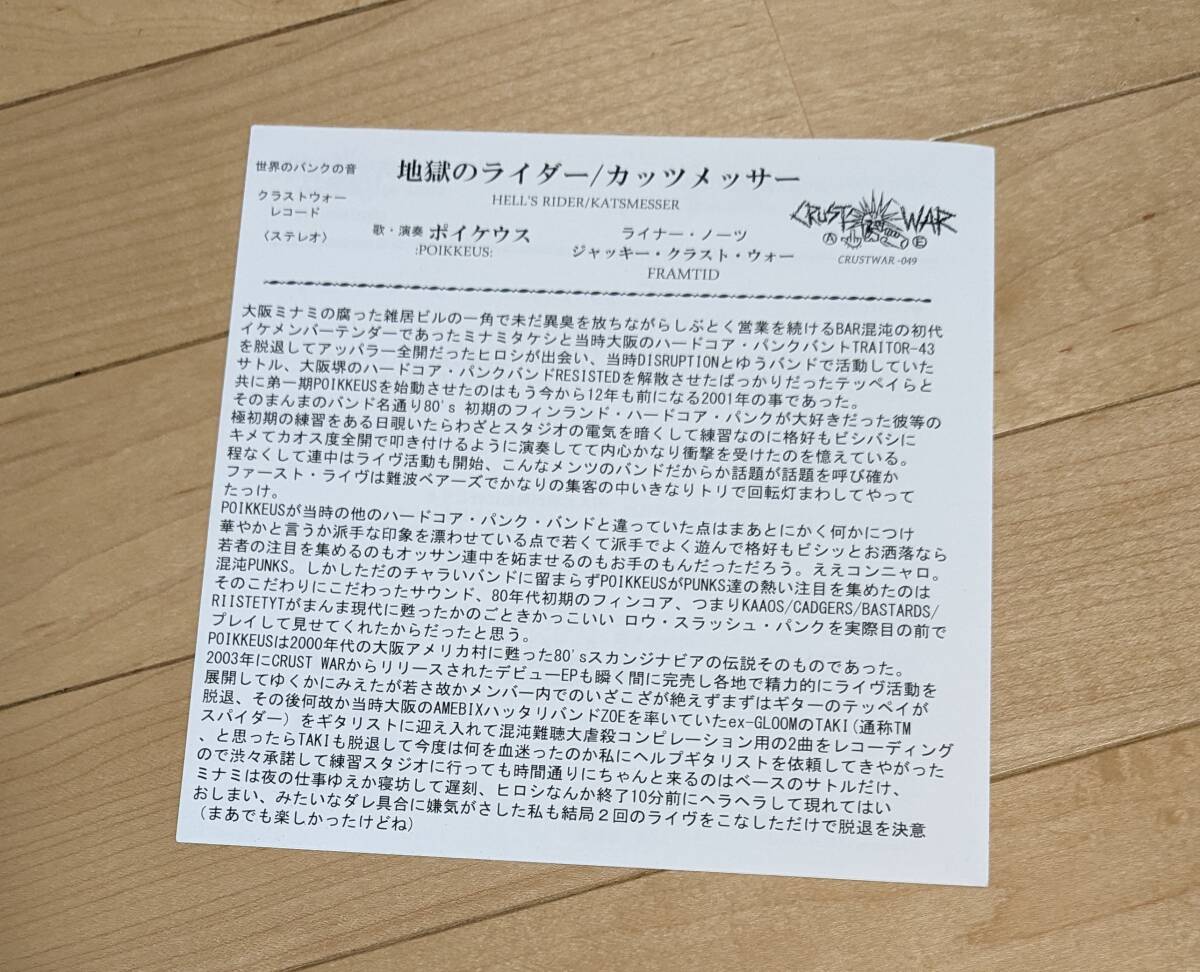 世界のパンクの音
クラストウォー
レコード
〈ステレオ〉
地獄のライダー/カッツメッサー
HELL'S RIDER/KATSMESSER
歌・演奏 ポイケウス
:POIKKEUS:
ライナー・ノーツ
ジャッキー・クラスト・ウォー
FRAMTID
CRUST WAR
CRUSTWAR-049
大阪ミナミの腐った雑居ビルの一角で未だ異臭を放ちながらしぶとく営業を続けるBAR混沌の初代
イケメンバーテンダーであったミナミタケシと当時大阪のハードコア・パンクバントTRAITOR-43
を脱退してアッパラー全開だったヒロシが出会い、当時DISRUPTIONとゆうバンドで活動していた
サトル、大阪堺のハードコア・パンクバンドRESISTEDを解散させたばっかりだったテッペイらと
共に第一期POIKKEUSを始動させたのはもう今から12年も前になる2001年の事であった。
そのまんまのバンド名通り80's 初期のフィンランド・ハードコア・パンクが大好きだった彼等の
極初期の練習をある日覗いたらわざとスタジオの電気を暗くして練習なのに格好もビシバシに
キメてカオス度全開で叩き付けるように演奏してて内心かなり衝撃を受けたのを憶えている。
程なくして連中はライヴ活動も開始、こんなメンツのバンドだからか話題が話題を呼び確か
ファースト・ライヴは難波ベアーズでかなりの集客の中いきなりトリで回転灯まわしてやって
たっけ。
POIKKEUSが当時の他のハードコア・パンク・バンドと違っていた点はまあとにかく何かにつけ
華やかと言うか派手な印象を漂わせている点で若くて派手でよく遊んで格好もビシッとお洒落なら
若者の注目を集めるのもオッサン連中を妬ませるのもお手のもんだっただろう。ええコンニャロ。
混沌PUNKS。しかしただのチャラいバンドに留まらずPOIKKEUSがPUNKS達の熱い注目を集めたのは
そのこだわりにこだわったサウンド、80年代初期のフィンコア、つまりKAAOS/CADGERS/BASTARDS/
RIISTETYTがまんま現代に甦ったかのごときかっこいい ロウ・スラッシュ・パンクを実際目の前で
プレイして見せてくれたからだったと思う。
POIKKEUSは2000年代の大阪アメリカ村に甦った80'sスカンジナビアの伝説そのものであった。
2003年にCRUST WARからリリースされたデビューEPも瞬く間に完売し各地で精力的にライヴ活動を
展開してゆくかにみえたが若さ故かメンバー内でのいざこざが絶えずまずはギターのテッペイが
脱退、その後何故か当時大阪のAMEBIXハッタリバンドZOEを率いていたex-GLOOMのTAKI(通称TM
スパイダー）をギタリストに迎え入れて混沌難聴大虐殺コンピレーション用の2曲をレコーディング
、と思ったらTAKIも脱退して今度は何を血迷ったのか私にヘルプギタリストを依頼してきやがった
ので渋々承諾して練習スタジオに行っても時間通りにちゃんと来るのはベースのサトルだけ、
ミナミは夜の仕事ゆえか寝坊して遅刻、ヒロシなんか終了10分前にヘラヘラして現れてはい
おしまい、みたいなダレ具合に嫌気がさした私も結局２回のライヴをこなしただけで脱退を決意
（まあでも楽しかったけどね）